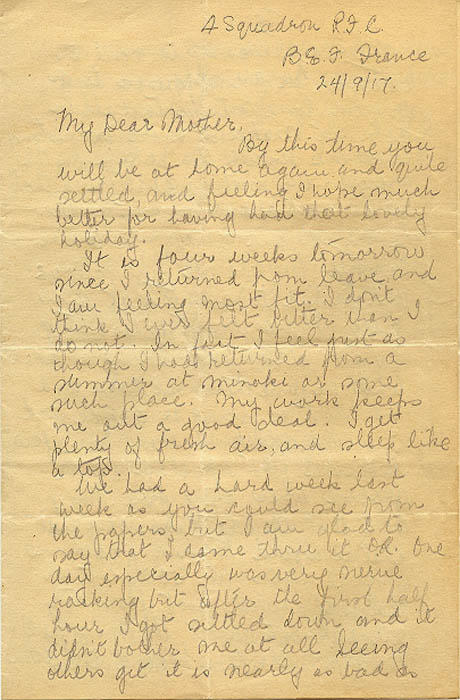 4 Squadron R.F.C.
B.E.F. France
24/9/17.
My Dear Mother,
By this time you
will be at home again and quite
settled, and feeling I hope much
better for having had that lovely
holiday.
It is four weeks tomorrow
since I returned from leave and
I am feeling most fit. I don't
think I ever felt better than I
do not. In fact I feel just as
though I had returned from a
summer at Minaki or some
such place. My work keeps
me out a good deal. I get
plenty of fresh air, and sleep like
a top.
We had a hard week last
week as you could see from
the papers but I am glad to
say that I came thru it OK. One
day especially was very nerve
racking but after the first half
hour I got settled down and it
didn't bother me at all. Seeing
others get it is nearly as bad as